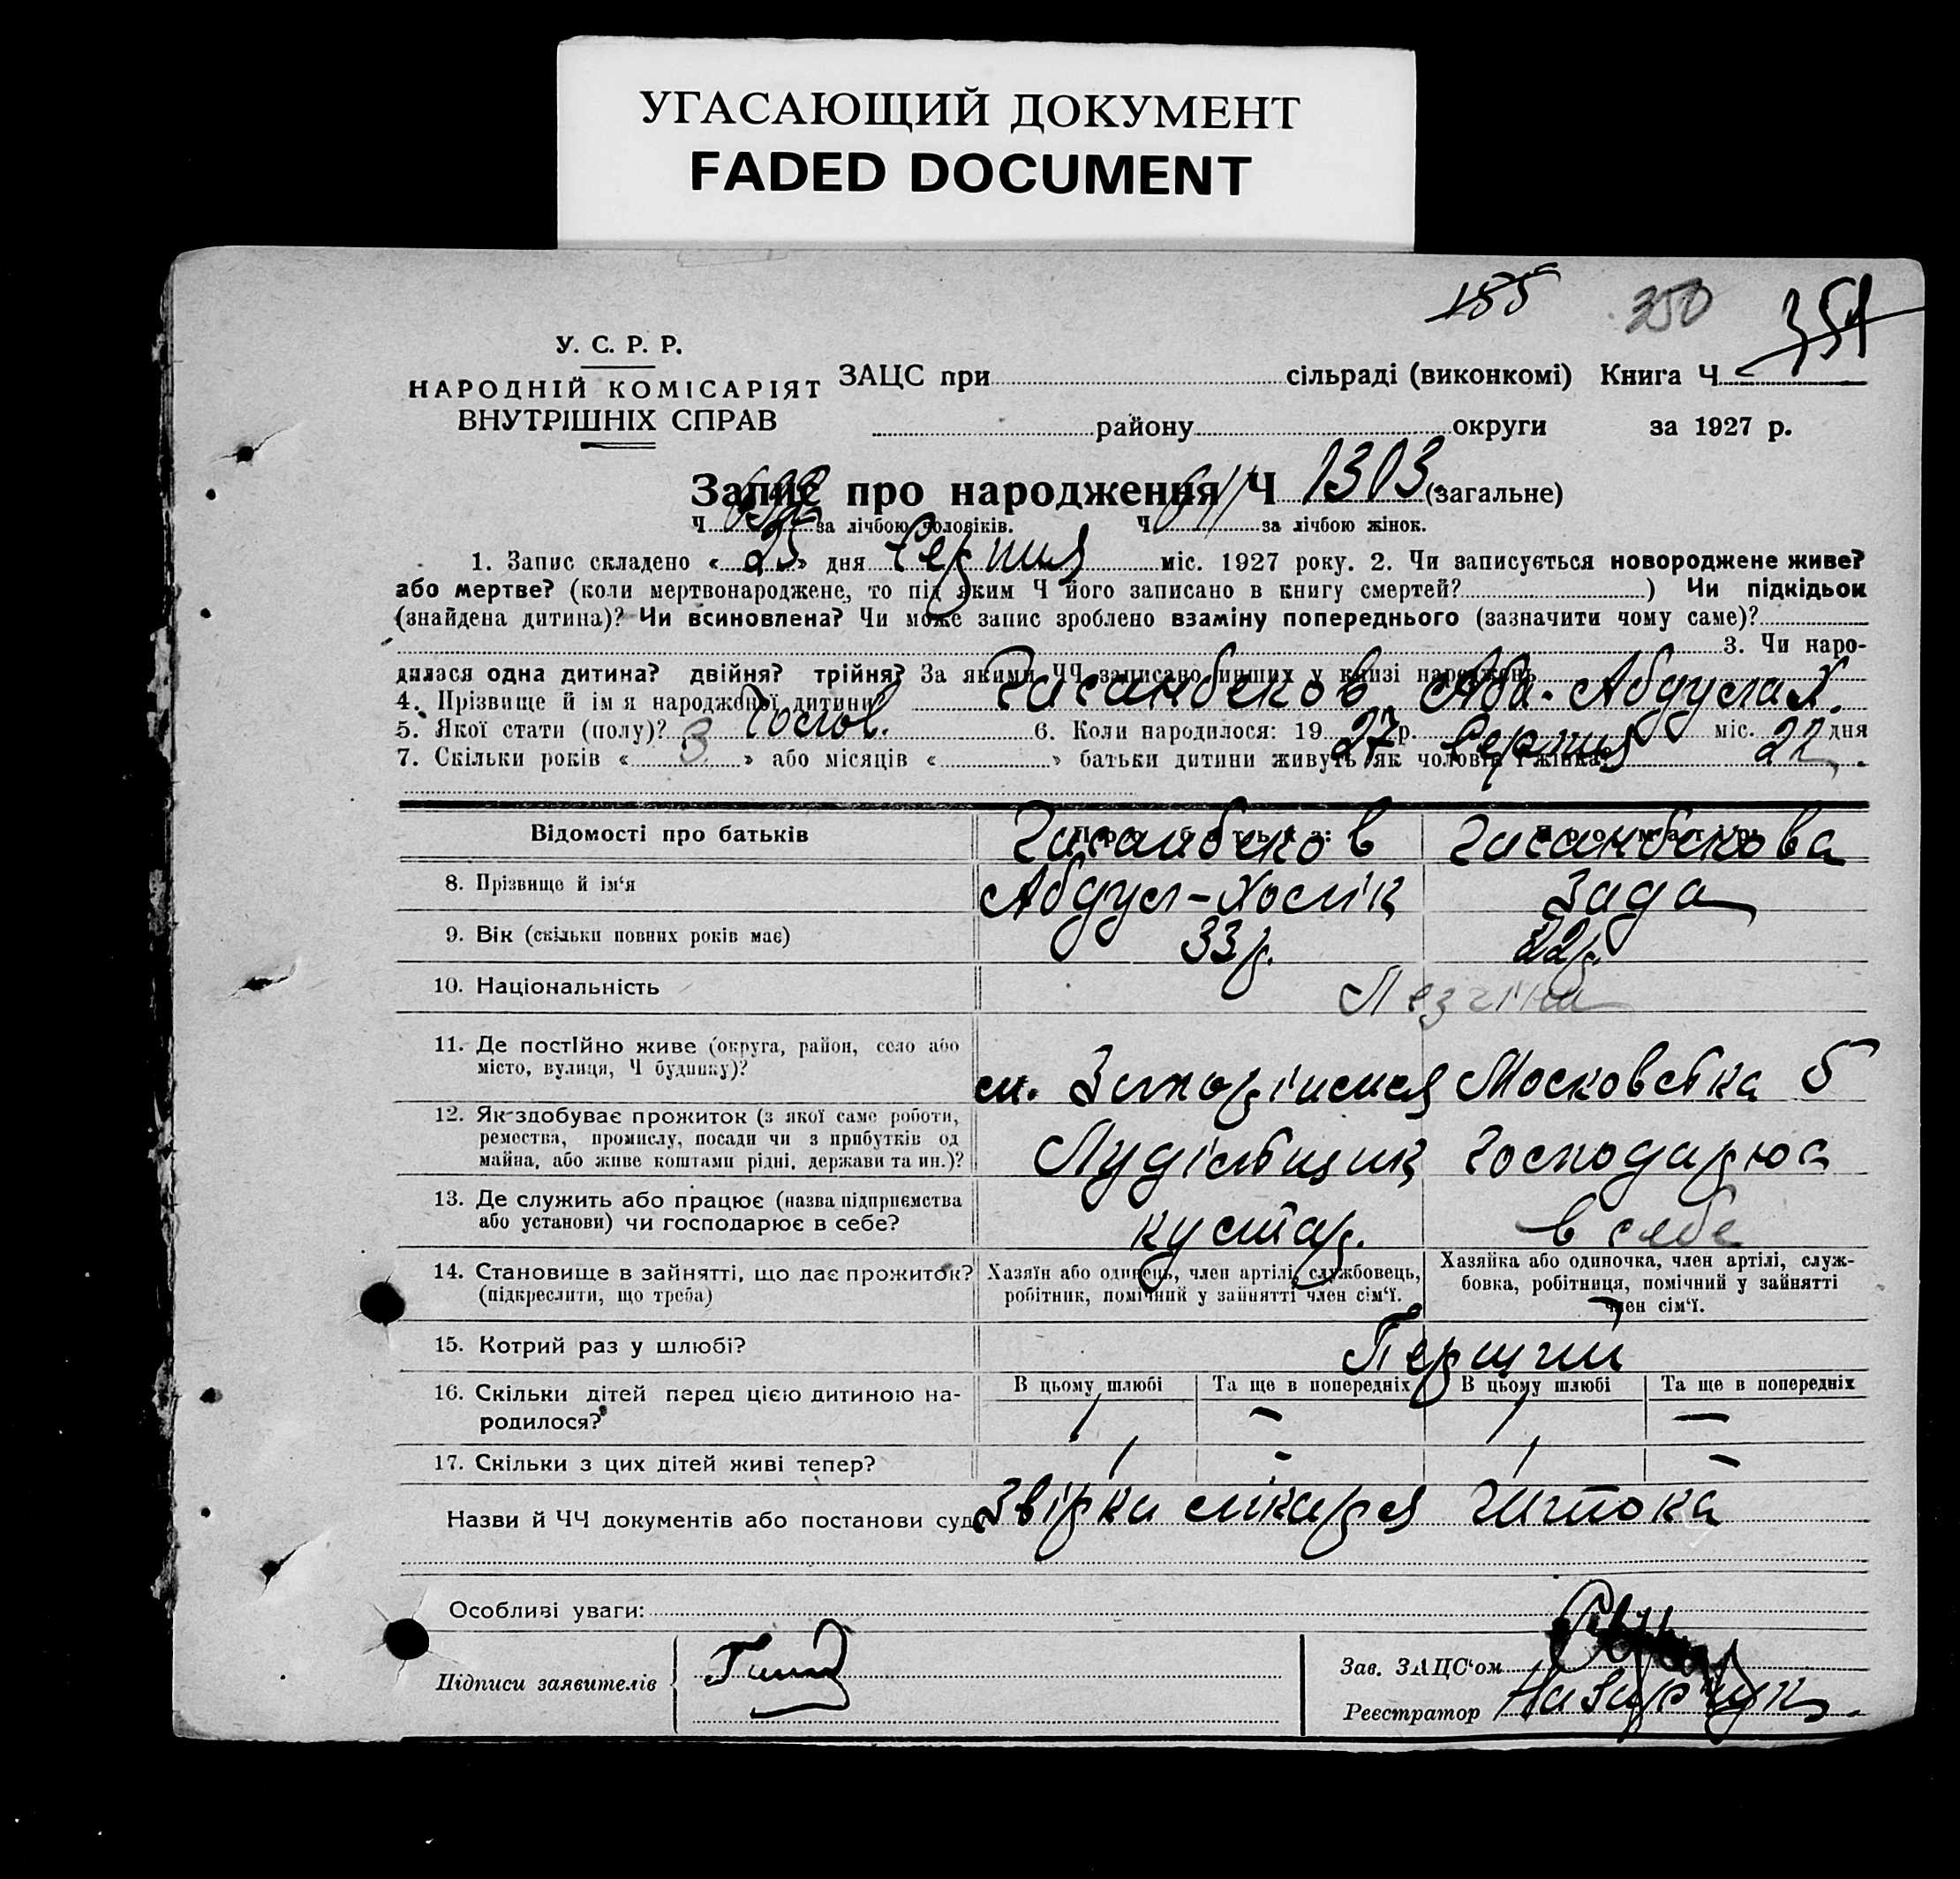 УГАСАЮЩИЙ ДОКУМЕНТ
FADED DOCUMENT
155 350 351
У. С. Р. Р.
НАРОДНІЙ КОМІСАРІЯТ
ВНУТРІШНІХ СПРАВ
ЗАЦС при сільраді (виконкомі) Книга Ч
району округи за 1927 р.
Запис про народження Ч 1303 (загальне)
Ч 692 за лічбою чоловіків. Ч 611 за лічбою жінок.
1. Запис складено « 25 » дня Серпня міс. 1927 року. 2. Чи записується новороджене живе?
або мертве? (коли мертвонароджене, то під яким Ч його записано в книгу смертей? ) Чи підкідьок
(знайдена дитина)? Чи всиновлена? Чи може запис зроблено взаміну попереднього (зазначити чому саме)?
3. Чи наро-
дилася одна дитина? двійня? трійня? За якими ЧЧ записано инших у книзі народжень
4. Прізвище й ім я народженої дитини Гасанбеков Аба-Абдулах.
5. Якої стати (полу)? Чолов. 6. Коли народилося: 19 27 р. Серпня міс. 22 дня
7. Скільки років « 3 » або місяців « » батьки дитини живуть як чоловік і жінка?
Відомості про батьків Про батька: Про матір:
8. Прізвище й ім'я Гасанбеков Абдул-Холік Гасанбекова Зада
9. Вік (скільки повних років має) 33 р. 22 р.
10. Національність Лезгіни
11. Де постійно живе (округа, район, село або
місто, вулиця, Ч будинку)? м. Запоріжжя Московська 5
12. Як здобуває прожиток (з якої саме роботи,
ремества, промислу, посади чи з прибутків од
майна, або живе коштами рідні, держави та ин.)? Лудільщик господарює
13. Де служить або працює (назва підприємства
або установи) чи господарює в себе? кустар. в себе
14. Становище в зайнятті, що дає прожиток?
(підкреслити, що треба)
Хазяїн або одинець, член артілі, службовець,
робітник, помічний у зайнятті член сім'ї.
Хазяйка або одиночка, член артілі, служ-
бовка, робітниця, помічний у зайнятті
член сім'ї.
15. Котрий раз у шлюбі? Перший
16. Скільки дітей перед цією дитиною на-
родилося?
В цьому шлюбі Та ще в попередніх В цьому шлюбі Та ще в попередніх
1 – 1 –
17. Скільки з цих дітей живі тепер? 1 - 1 -
Назви й ЧЧ документів або постанови суду лікаря
Особливі уваги:
Підписи заявителів
Зав. ЗАЦС'ом
Реєстратор Назарчук